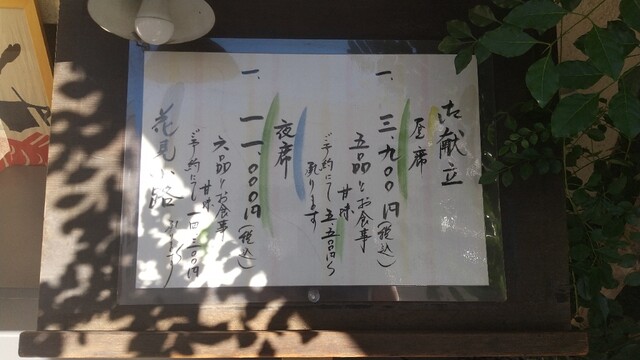 御献立
昼席
一、三、九〇〇円(税込)
五品とお食事
甘味
ご予約にて五、五〇〇円ゟ
承ります
夜席
一、一一、〇〇〇円(税込)
六品とお食事
甘味
ご予約にて一四、三〇〇円
花見小路